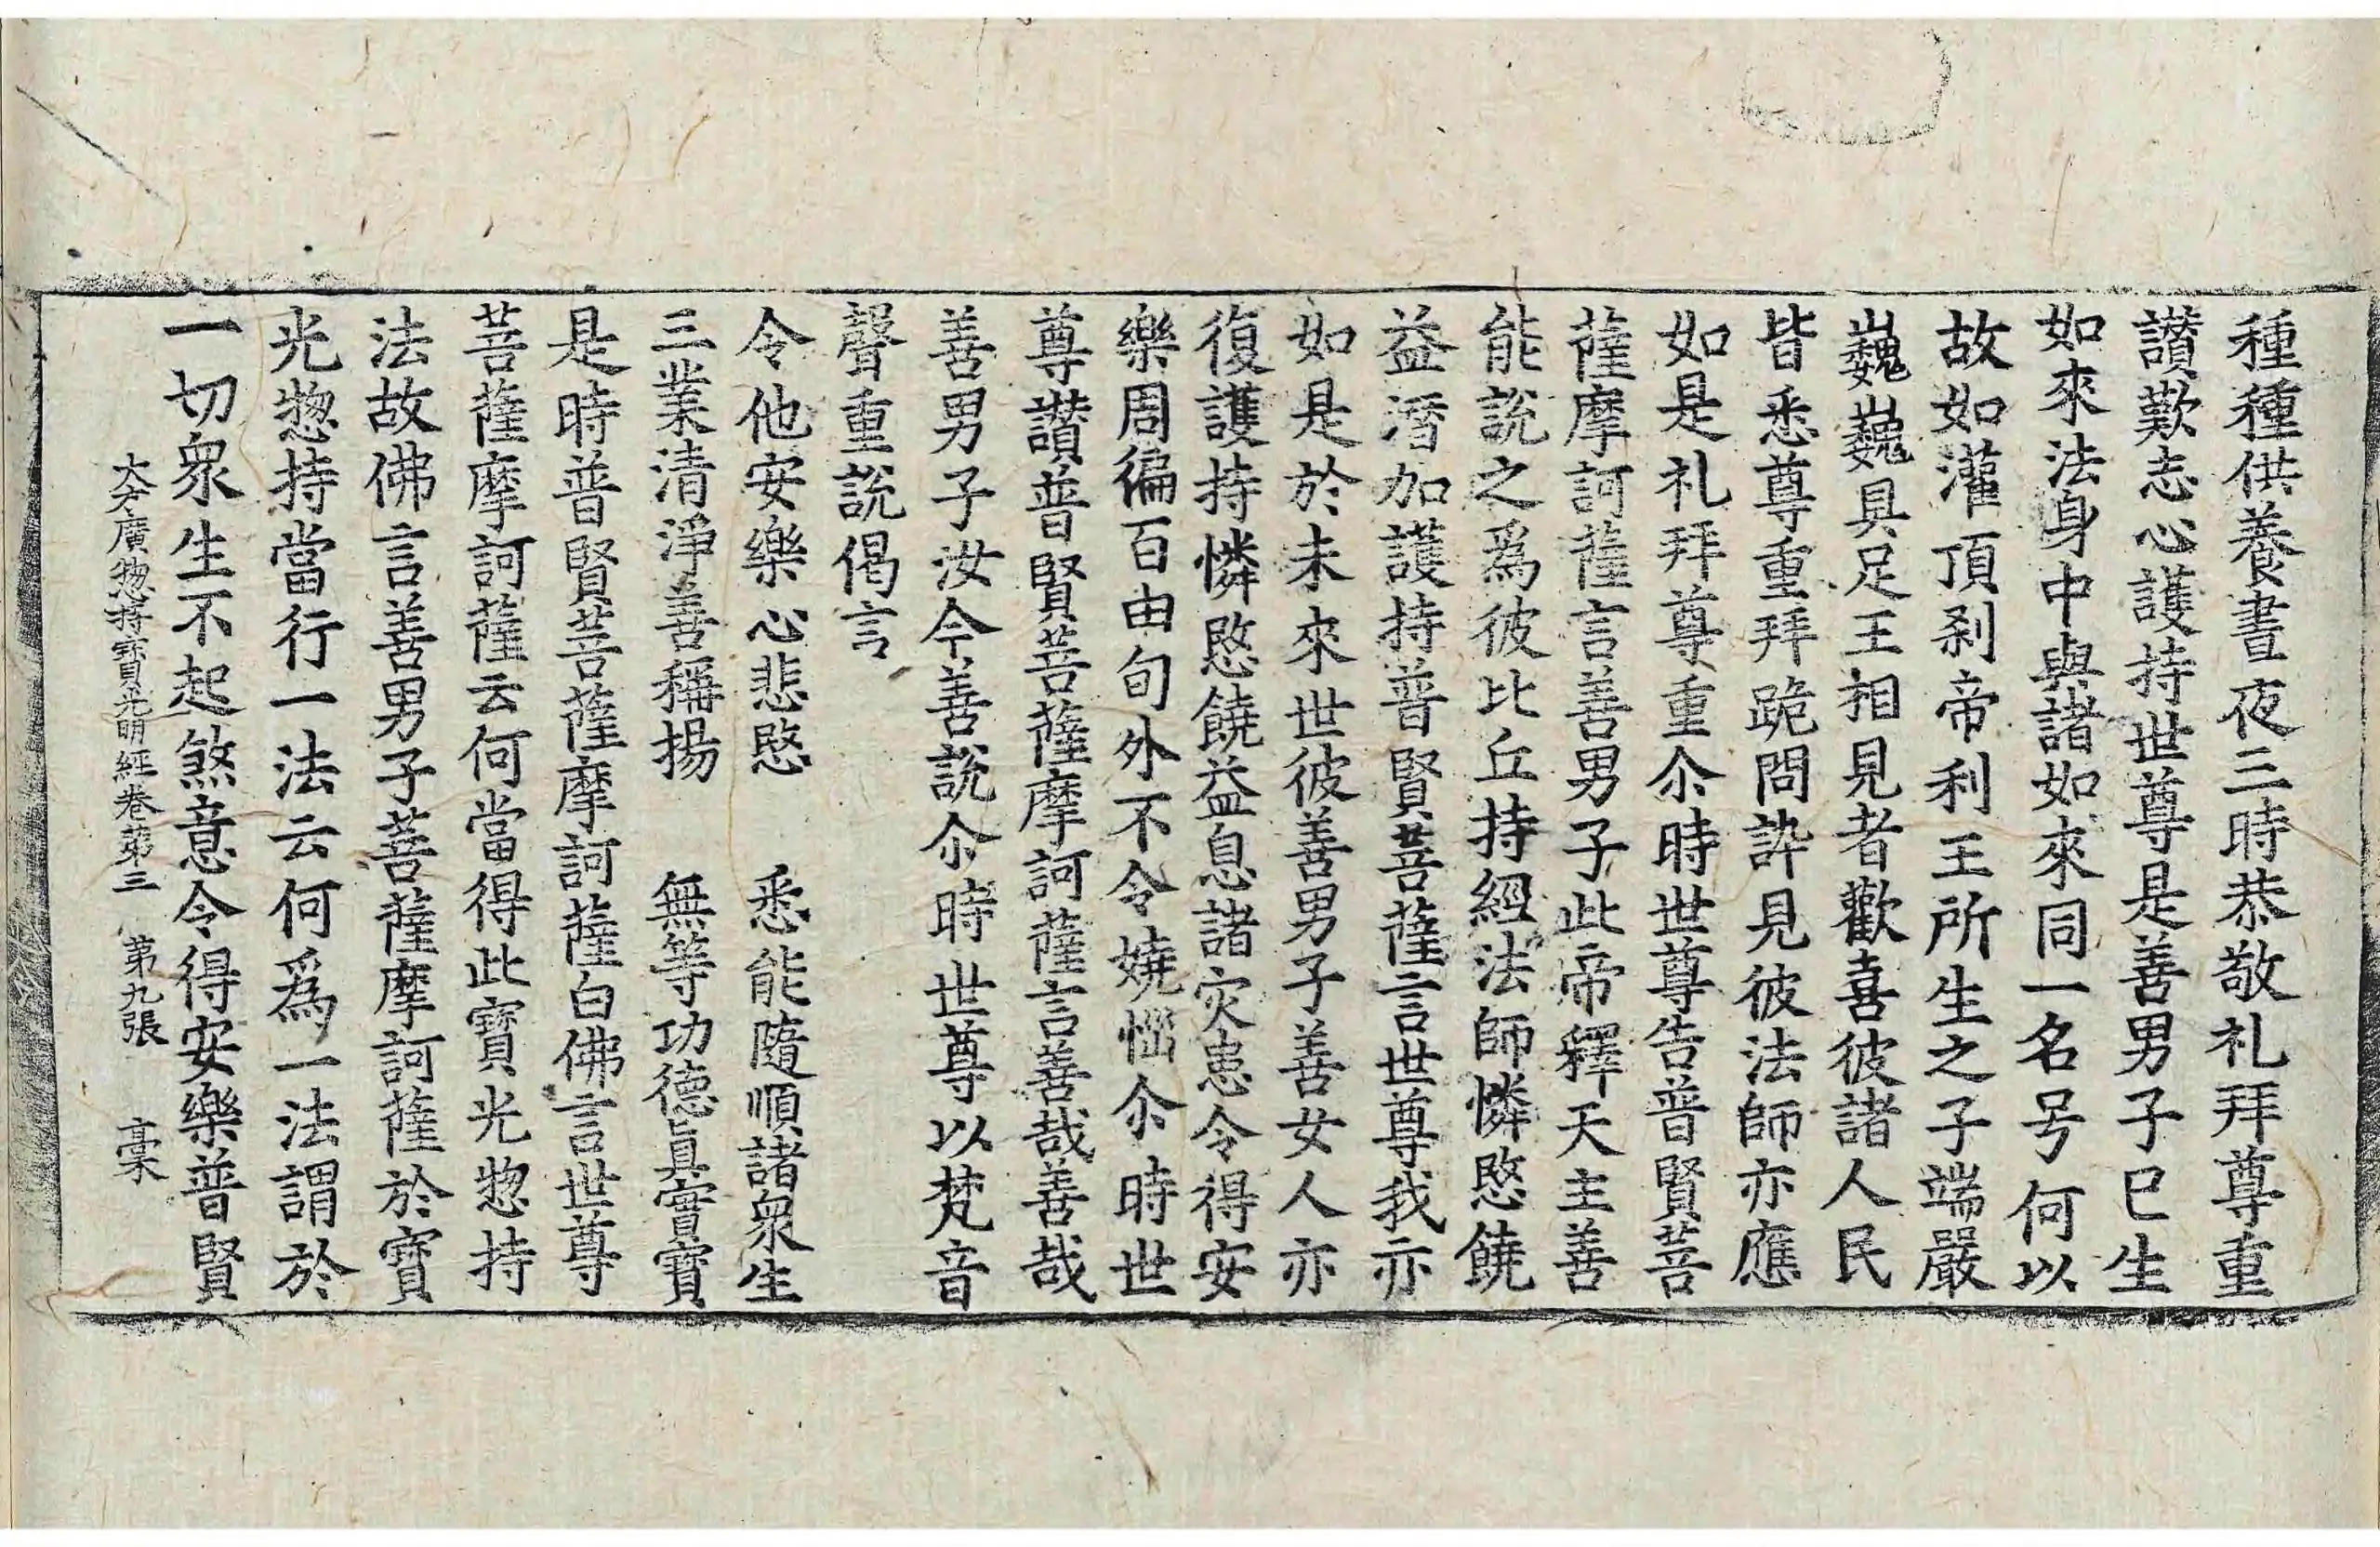 種種供養晝夜三時恭敬礼拜尊重
讃歎志心護持世尊是善男子已生
如來法身中與諸如來同一名号何以
故如灌頂刹帝利王所生之子端嚴
巍巍具足王相見者歡喜彼諸人民
皆悉尊重拜跪問訊見彼法師亦應
如是礼拜尊重尒時世尊告普賢菩
薩摩訶薩言善男子此帝釋天主善
能說之爲彼比丘持經法師憐愍饒
益潛加護持普賢菩薩言世尊我亦
如是於未來世彼善男子善女人亦
復護持憐愍饒益息諸灾患令得安
樂周徧百由旬外不令嬈惱尒時世
尊讃普賢菩薩摩訶薩言善哉善哉
善男子汝今善說尒時世尊以梵音
聲重說偈言
令他安樂心悲愍　悉能隨順諸衆生
三業清淨善稱揚　無等功德眞實寶
是時普賢菩薩摩訶薩白佛言世尊
菩薩摩訶薩云何當得此寶光惣持
法故佛言善男子菩薩摩訶薩於寶
光惣持當行一法云何爲一法謂於
一切衆生不起煞意令得安樂普賢
大方廣惣持寶光明經卷第三　第九張　稾